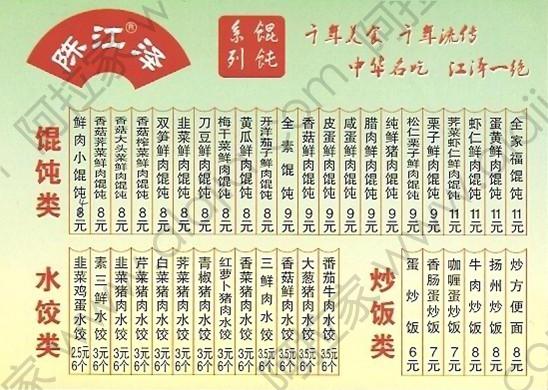 陈江泽®
馄饨系列
千年美食 千年流传
中华名吃 江泽一绝
馄饨类
鲜肉小馄饨 8元
香菇荠菜鲜肉馄饨 8元
香菇大头菜鲜肉馄饨 8元
香菇榨菜鲜肉馄饨 8元
双笋鲜肉馄饨 8元
韭菜鲜肉馄饨 8元
刀豆鲜肉馄饨 8元
梅干菜鲜肉馄饨 8元
黄瓜鲜肉馄饨 8元
开洋茄子鲜肉馄饨 8元
全素馄饨 9元
香菇鲜肉馄饨 9元
皮蛋鲜肉馄饨 9元
咸蛋鲜肉馄饨 9元
腊肉鲜肉馄饨 9元
纯鲜猪肉馄饨 9元
松仁栗子鲜肉馄饨 9元
栗子鲜肉馄饨 9元
荠菜虾仁鲜肉馄饨 11元
虾仁鲜肉馄饨 11元
蛋黄鲜肉馄饨 11元
全家福馄饨 11元
水饺类
韭菜鸡蛋水饺 2.5元6个
素三鲜水饺 3元6个
韭菜猪肉水饺 3元6个
芹菜猪肉水饺 3元6个
白菜猪肉水饺 3元6个
荠菜猪肉水饺 3元6个
青椒猪肉水饺 3元6个
红萝卜猪肉水饺 3元6个
三鲜水饺 3.5元6个
香菇鲜肉水饺 3.5元6个
大葱猪肉水饺 3.5元6个
番茄牛肉水饺 3.5元6个
炒饭类
蛋炒饭 6元
香肠蛋炒饭 7元
咖喱蛋炒饭 7元
牛肉炒饭 8元
扬州炒饭 8元
炒方便面 8元
阿拉家 www.alajia.com